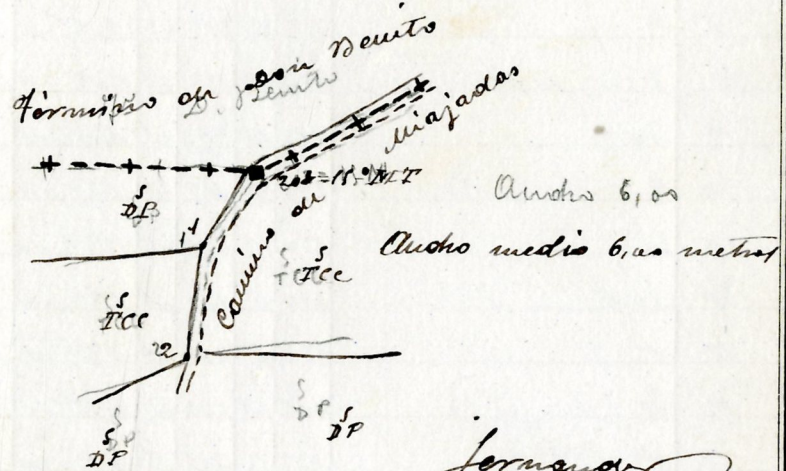 Término de Don Benito
D. Benito
Camino de Miajadas
Ancho 6,00
Ancho medio 6,00 metros
S
DP
S
TCC
S
TCC
22
S
DP
S
DP
Fernando